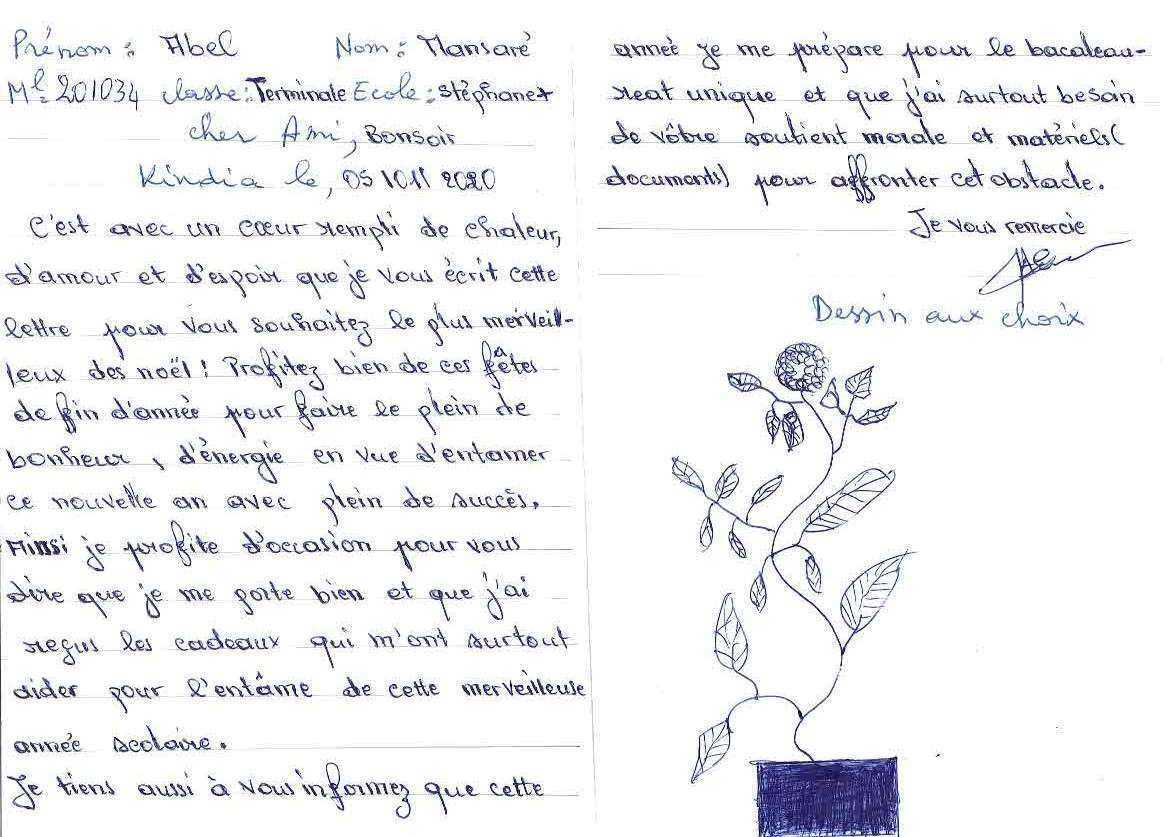 Prénom : Abel Nom : Mansaré
Mle: 201034 classe: Terminale Ecole : Stéphanet
cher Ami, Bonsoir
Kindia le, 05 10 11 2020
C'est avec un cœur rempli de chaleur,
d'amour et d'espoir que je vous écrit cette
lettre pour vous souhaitez le plus merveil-
leux des noël! Profitez bien de ces fêtes
de fin d'année pour faire le plein de
bonheur, d'énergie en vue d'entamer
ce nouvelle an avec plein de succès.
Ainsi je profite d'occasion pour vous
dire que je me porte bien et que j'ai
reçus les cadeaux qui m'ont surtout
aider pour l'entâme de cette merveilleuse
année scolaire.
Je tiens aussi à vous informez que cette
année je me prépare pour le bacaleau-
reat unique et que j'ai surtout besoin
de vôtre soutient morale et matériels(
documents) pour affronter cet obstacle.
Je vous remercie
Dessin aux choix